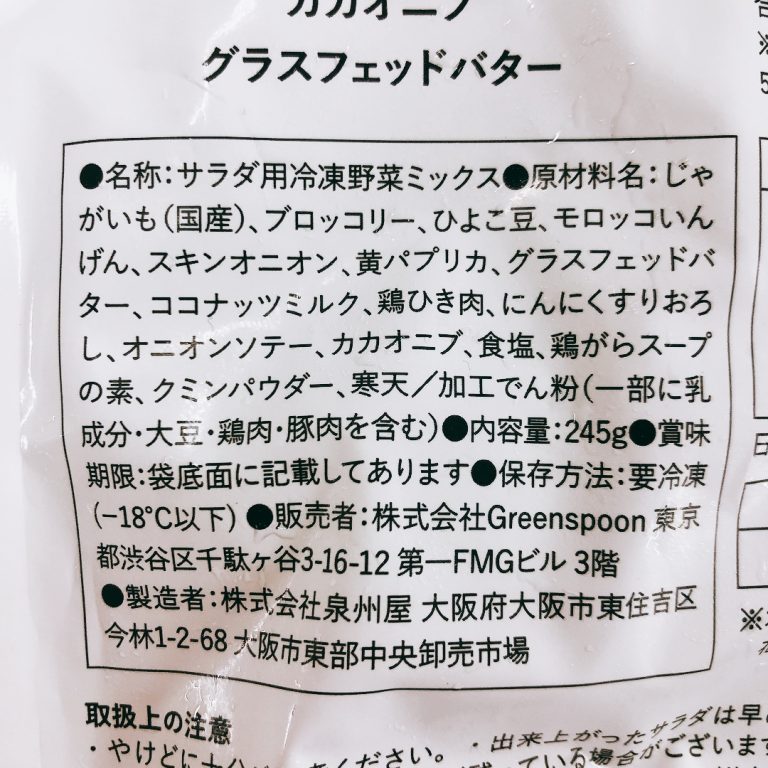 カカオニブ
グラスフェッドバター
●名称：サラダ用冷凍野菜ミックス●原材料名：じゃ
がいも（国産）、ブロッコリー、ひよこ豆、モロッコいん
げん、スキンオニオン、黄パプリカ、グラスフェッドバ
ター、ココナッツミルク、鶏ひき肉、にんにくすりおろ
し、オニオンソテー、カカオニブ、食塩、鶏がらスープ
の素、クミンパウダー、寒天／加工でん粉（一部に乳
成分・大豆・鶏肉・豚肉を含む）●内容量：245g●賞味
期限：袋底面に記載してあります●保存方法：要冷凍
（−18℃以下）●販売者：株式会社Greenspoon 東京
都渋谷区千駄ヶ谷3-16-12 第一FMGビル 3階
●製造者：株式会社泉州屋 大阪府大阪市東住吉区
今林1-2-68 大阪市東部中央卸売市場
取扱上の注意
・やけどに十分 ください。・出来上がったサラダは早
っている場合がございます